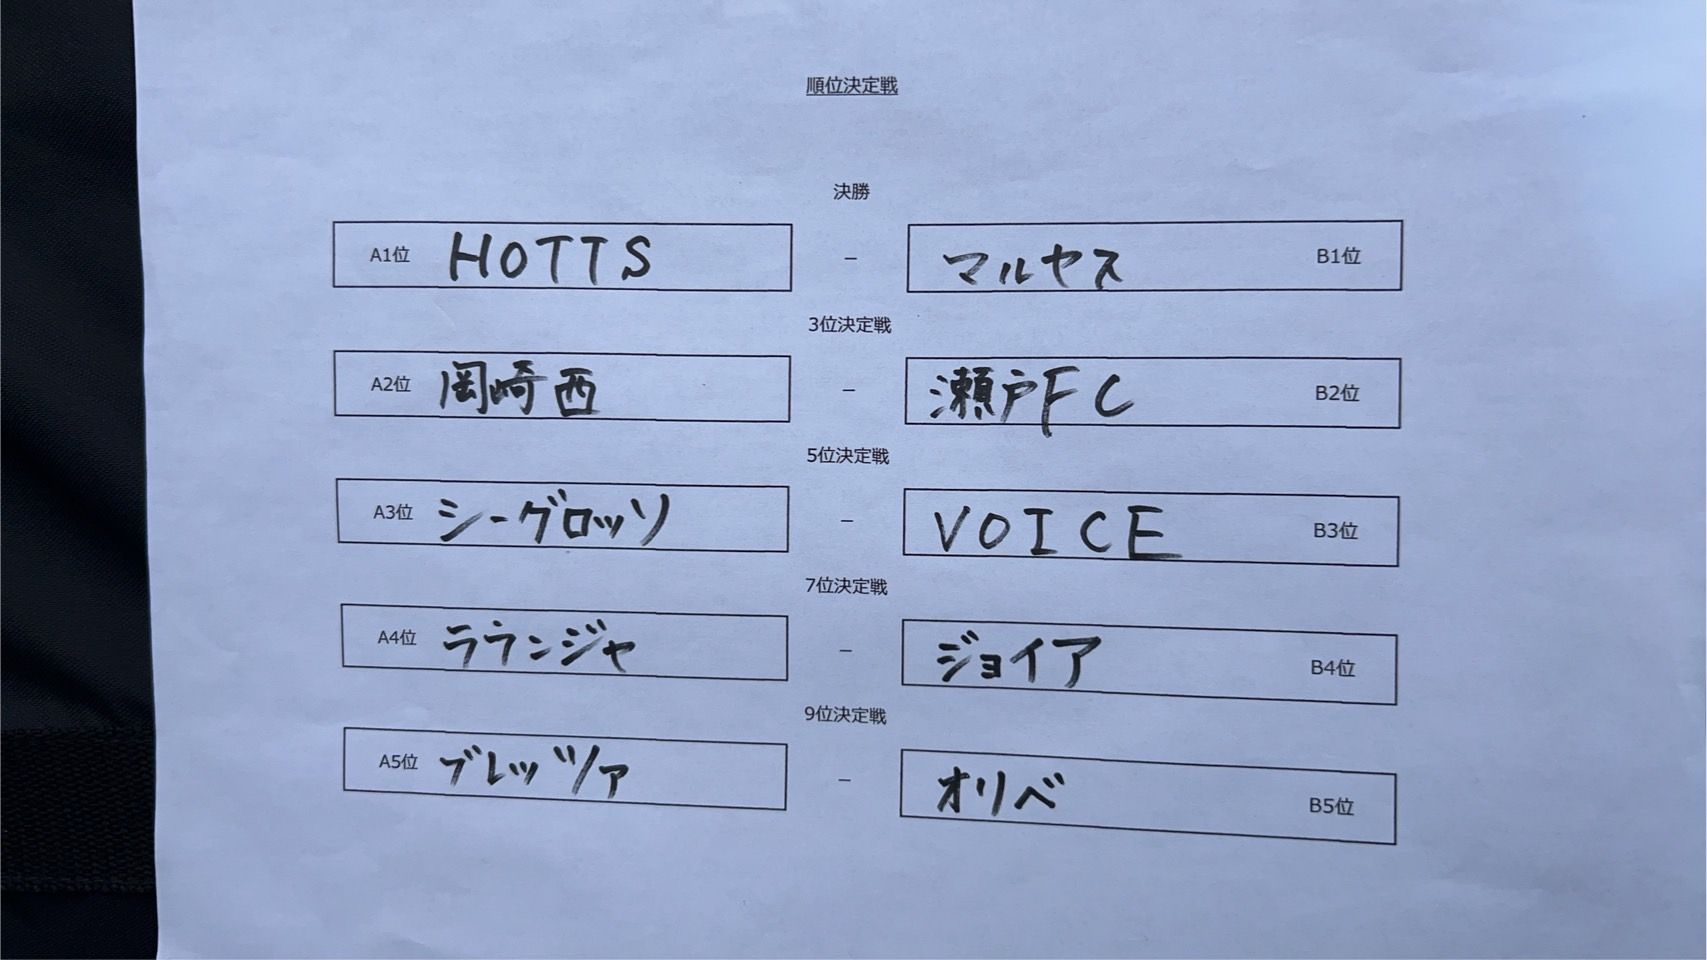 順位決定戦
決勝
A1位 HOTTS － マルヤス B1位
3位決定戦
A2位 岡崎西 － 瀬戸FC B2位
5位決定戦
A3位 シーグロッソ － VOICE B3位
7位決定戦
A4位 ラランジャ － ジョイア B4位
9位決定戦
A5位 ブレッツァ － オリベ B5位